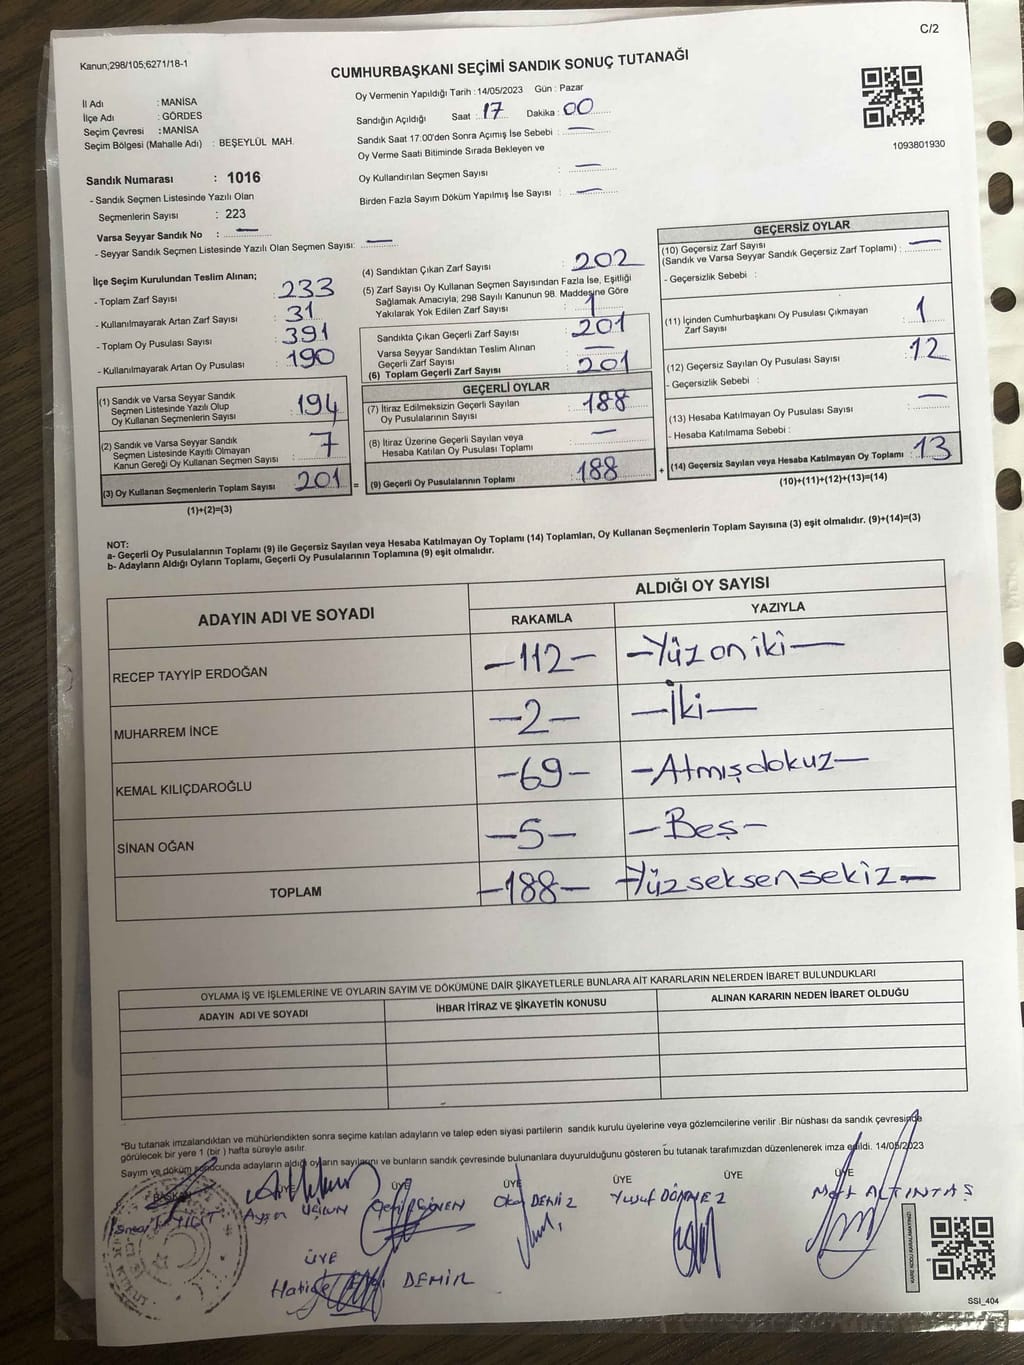 C/2
Kanun;298/105;6271/18-1
CUMHURBAŞKANI SEÇİMİ SANDIK SONUÇ TUTANAĞI
İl Adı : MANİSA
İlçe Adı : GÖRDES
Seçim Çevresi : MANİSA
Seçim Bölgesi (Mahalle Adı) : BEŞEYLÜL MAH.
Oy Vermenin Yapıldığı Tarih : 14/05/2023 Gün : Pazar
Sandığın Açıldığı Saat : 17 Dakika : 00
Sandık Saat 17:00'den Sonra Açımış İse Sebebi : —
Oy Verme Saati Bitiminde Sırada Bekleyen ve
Oy Kullandırılan Seçmen Sayısı : —
Birden Fazla Sayım Döküm Yapılmış İse Sayısı : —
1093801930
Sandık Numarası : 1016
- Sandık Seçmen Listesinde Yazılı Olan
Seçmenlerin Sayısı : 223
Varsa Seyyar Sandık No : —
- Seyyar Sandık Seçmen Listesinde Yazılı Olan Seçmen Sayısı: —
İlçe Seçim Kurulundan Teslim Alınan;
- Toplam Zarf Sayısı : 233
- Kullanılmayarak Artan Zarf Sayısı : 31
- Toplam Oy Pusulası Sayısı : 391
- Kullanılmayarak Artan Oy Pusulası : 190
(1) Sandık ve Varsa Seyyar Sandık
Seçmen Listesinde Yazılı Olup
Oy Kullanan Seçmenlerin Sayısı : 194
(2) Sandık ve Varsa Seyyar Sandık
Seçmen Listesinde Kayıtlı Olmayan
Kanun Gereği Oy Kullanan Seçmen Sayısı : 7
(3) Oy Kullanan Seçmenlerin Toplam Sayısı : 201 =
(1)+(2)=(3)
(4) Sandıktan Çıkan Zarf Sayısı : 202
(5) Zarf Sayısı Oy Kullanan Seçmen Sayısından Fazla İse, Eşitliği
Sağlamak Amacıyla; 298 Sayılı Kanunun 98. Maddesine Göre
Yakılarak Yok Edilen Zarf Sayısı : 1
Sandıkta Çıkan Geçerli Zarf Sayısı : 201
Varsa Seyyar Sandıktan Teslim Alınan
Geçerli Zarf Sayısı : —
(6) Toplam Geçerli Zarf Sayısı : 201
GEÇERLİ OYLAR
(7) İtiraz Edilmeksizin Geçerli Sayılan
Oy Pusulalarının Sayısı : 188
(8) İtiraz Üzerine Geçerli Sayılan veya
Hesaba Katılan Oy Pusulası Toplamı : —
(9) Geçerli Oy Pusulalarının Toplamı : 188 +
GEÇERSİZ OYLAR
(10) Geçersiz Zarf Sayısı
(Sandık ve Varsa Seyyar Sandık Geçersiz Zarf Toplamı) : —
- Geçersizlik Sebebi :
(11) İçinden Cumhurbaşkanı Oy Pusulası Çıkmayan
Zarf Sayısı : 1
(12) Geçersiz Sayılan Oy Pusulası Sayısı : 12
- Geçersizlik Sebebi :
(13) Hesaba Katılmayan Oy Pusulası Sayısı : —
- Hesaba Katılmama Sebebi :
(14) Geçersiz Sayılan veya Hesaba Katılmayan Oy Toplamı : 13
(10)+(11)+(12)+(13)=(14)
NOT:
a- Geçerli Oy Pusulalarının Toplamı (9) ile Geçersiz Sayılan veya Hesaba Katılmayan Oy Toplamı (14) Toplamları, Oy Kullanan Seçmenlerin Toplam Sayısına (3) eşit olmalıdır. (9)+(14)=(3)
b- Adayların Aldığı Oyların Toplamı, Geçerli Oy Pusulalarının Toplamına (9) eşit olmalıdır.
ADAYIN ADI VE SOYADI ALDIĞI OY SAYISI
RAKAMLA YAZIYLA
RECEP TAYYİP ERDOĞAN —112— —Yüzoniki—
MUHARREM İNCE —2— —İki—
KEMAL KILIÇDAROĞLU —69— —Atmışdokuz—
SİNAN OĞAN —5— —Beş—
TOPLAM —188— —Yüzseksensekiz—
OYLAMA İŞ VE İŞLEMLERİNE VE OYLARIN SAYIM VE DÖKÜMÜNE DAİR ŞİKAYETLERLE BUNLARA AİT KARARLARIN NELERDEN İBARET BULUNDUKLARI
ADAYIN ADI VE SOYADI İHBAR İTİRAZ VE ŞİKAYETİN KONUSU ALINAN KARARIN NEDEN İBARET OLDUĞU
*Bu tutanak imzalandıktan ve mühürlendikten sonra seçime katılan adayların ve talep eden siyasi partilerin sandık kurulu üyelerine veya gözlemcilerine verilir .Bir nüshası da sandık çevresinde
görülecek bir yere 1 (bir ) hafta süreyle asılır.
Sayım ve döküm sonucunda adayların aldığı oyların sayılarını ve bunların sandık çevresinde bulunanlara duyurulduğunu gösteren bu tutanak tarafımızdan düzenlenerek imza edildi. 14/05/2023
BAŞKAN ÜYE ÜYE ÜYE ÜYE ÜYE
YİĞİT DENİZ Yusuf DÖNMEZ Mert ALTINTAŞ
ÜYE
Hatice DEMİR
SSI_404